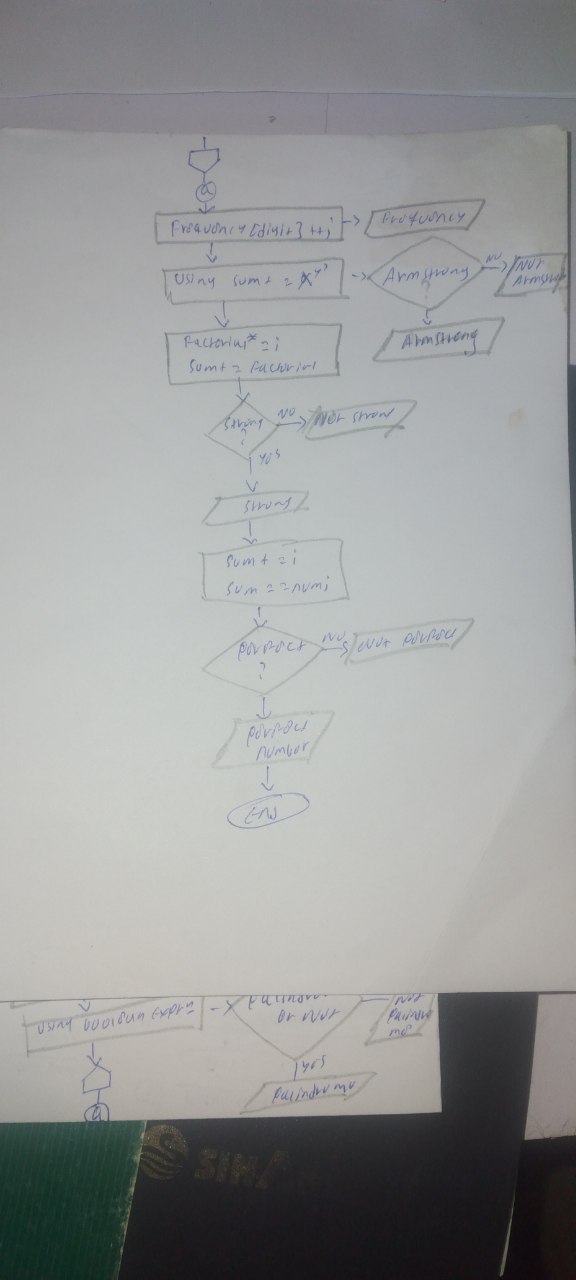 a
Frequency [digit] ++;
Frequency
Using sum+ = x^y
Armstrong
?
NO
Not
Armstron
Armstrong
Factorial* = i
sum+ = Factorial
Strong
?
NO
Not strong
yes
Strong
sum+ = i
sum = = num;
perfect
?
NO
Not perfect
perfect
number
END
Using boolean expre
or Not
Not
palindro
me
yes
palindrome
a